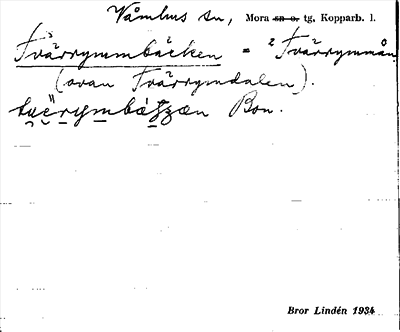 Våmhus sn, Mora sn o. tg, Kopparb. l.
Tvärrymmbäcken = Tvärrymmån
(ovan Tvärrymdalen).
Bon.
Bror Lindén 1934